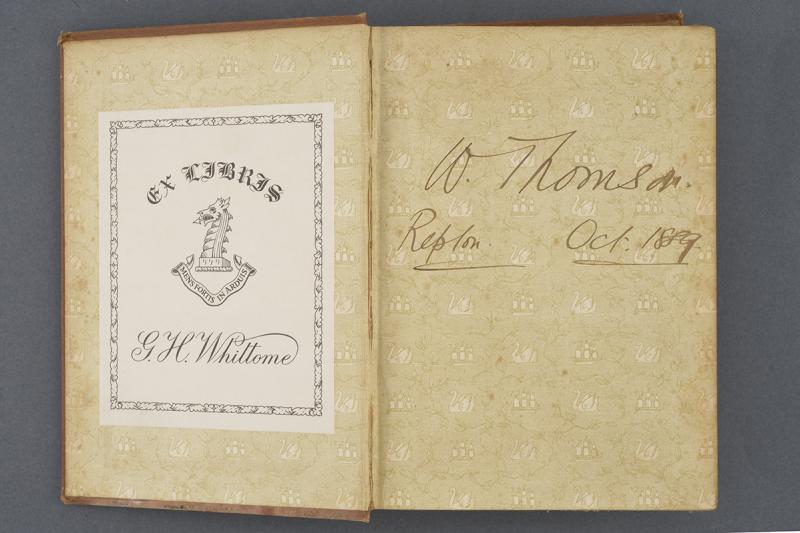 EX LIBRIS
MENS FORTIS IN ARDUIS
G. H. Whittome
W. Thomson.
Repton Oct. 1889.